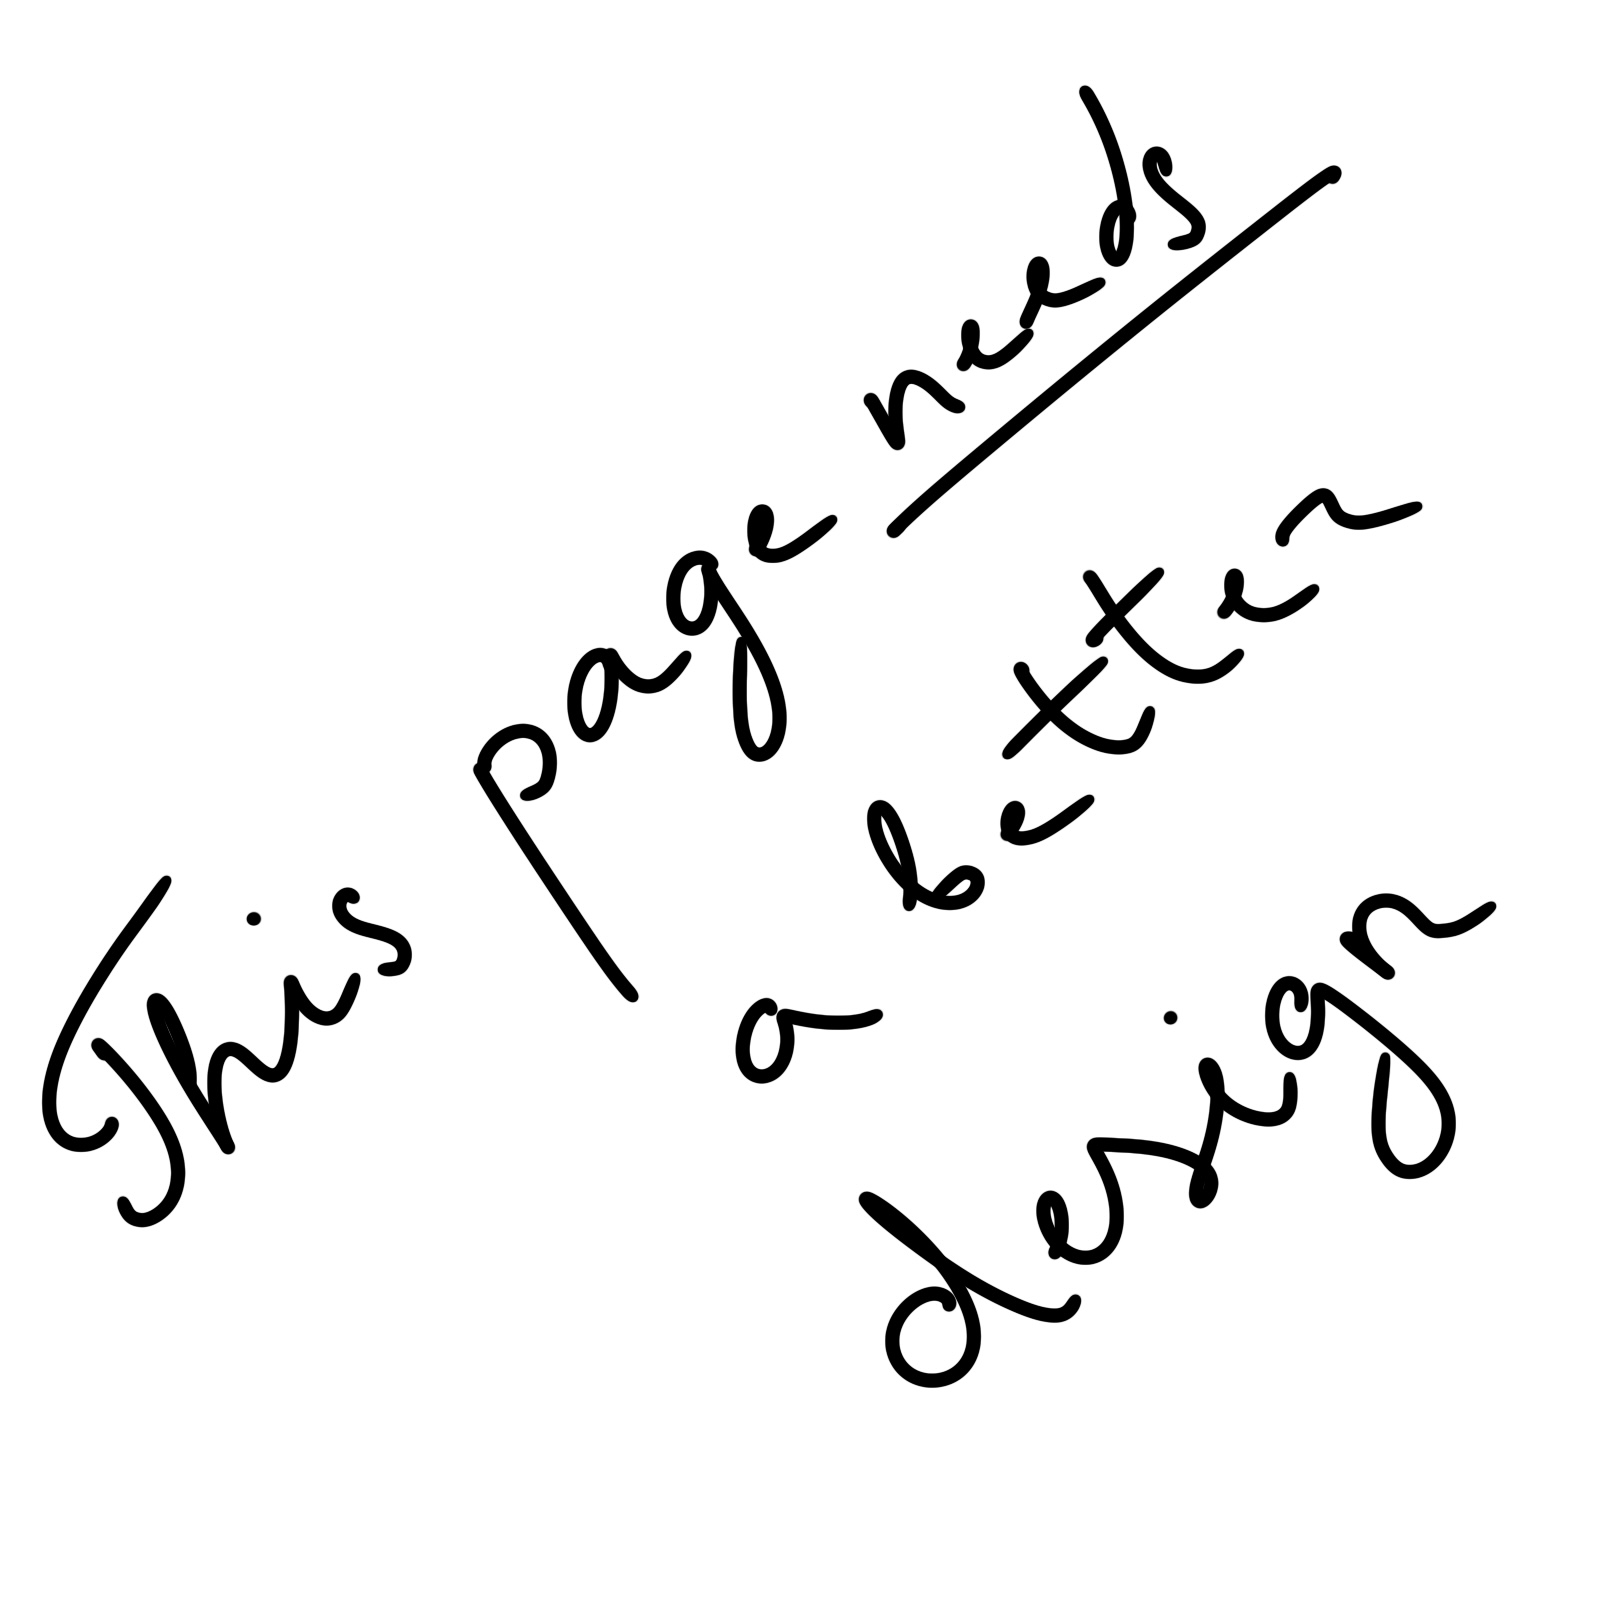 This page needs
a better
design